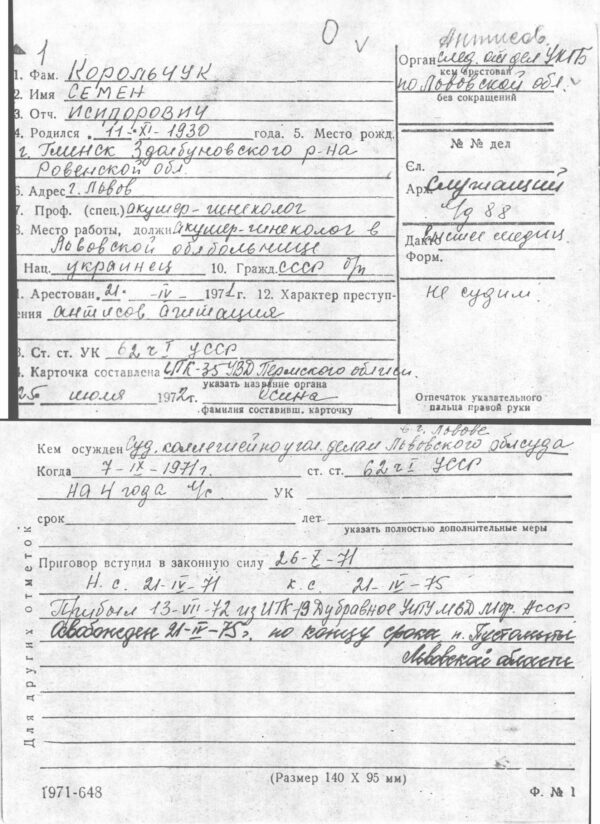 1
О
Антисов.
1. Фам. КОРОЛЬЧУК
Орган след. отдел УКГБ
кем арестован
по Львовской обл.
без сокращений
2. Имя СЕМЕН
3. Отч. ИСИДОРОВИЧ
4. Родился 11-XI-1930 года. 5. Место рожд.
г. Глинск Здолбуновского р-на
Ровенской обл.
№ № дел
Сл.
6. Адрес г. Львов
Арх. служащий
7. Проф. (спец.) акушер-гинеколог
ч/д 88
8. Место работы, должн. акушер-гинеколог в
Львовской облбольнице
Дакто высшее медиц
Форм.
Нац. украинец 10. Гражд. СССР б/п
1. Арестован 21-IV-1971 г. 12. Характер преступ-
ления антисов агитация
не судим.
3. Ст. ст. УК 62 ч I УССР
4. Карточка составлена ИТК-35 УВД Пермского облисп.
указать название органа
25 июля 1972 г. Осина
фамилия составивш. карточку
Отпечаток указательного
пальца правой руки
в г. Львове
Кем осужден Суд. коллегией по угол. делам Львовского облсуда
Когда 7-IX-1971 г. ст. ст. 62 ч I УССР
на 4 года л/с УК
срок лет
указать полностью дополнительные меры
Приговор вступил в законную силу 26-X-71
Н. с. 21-IV-71 к. с. 21-IV-75
Прибыл 13-VII-72 из ИТК-19 Дубравное УИТУ МВД Морд. АССР
Освобожден 21-IV-75 г. по концу срока п. Пустомыты
Львовской области
Для других отметок
(Размер 140 X 95 мм)
1971-648
Ф. № 1